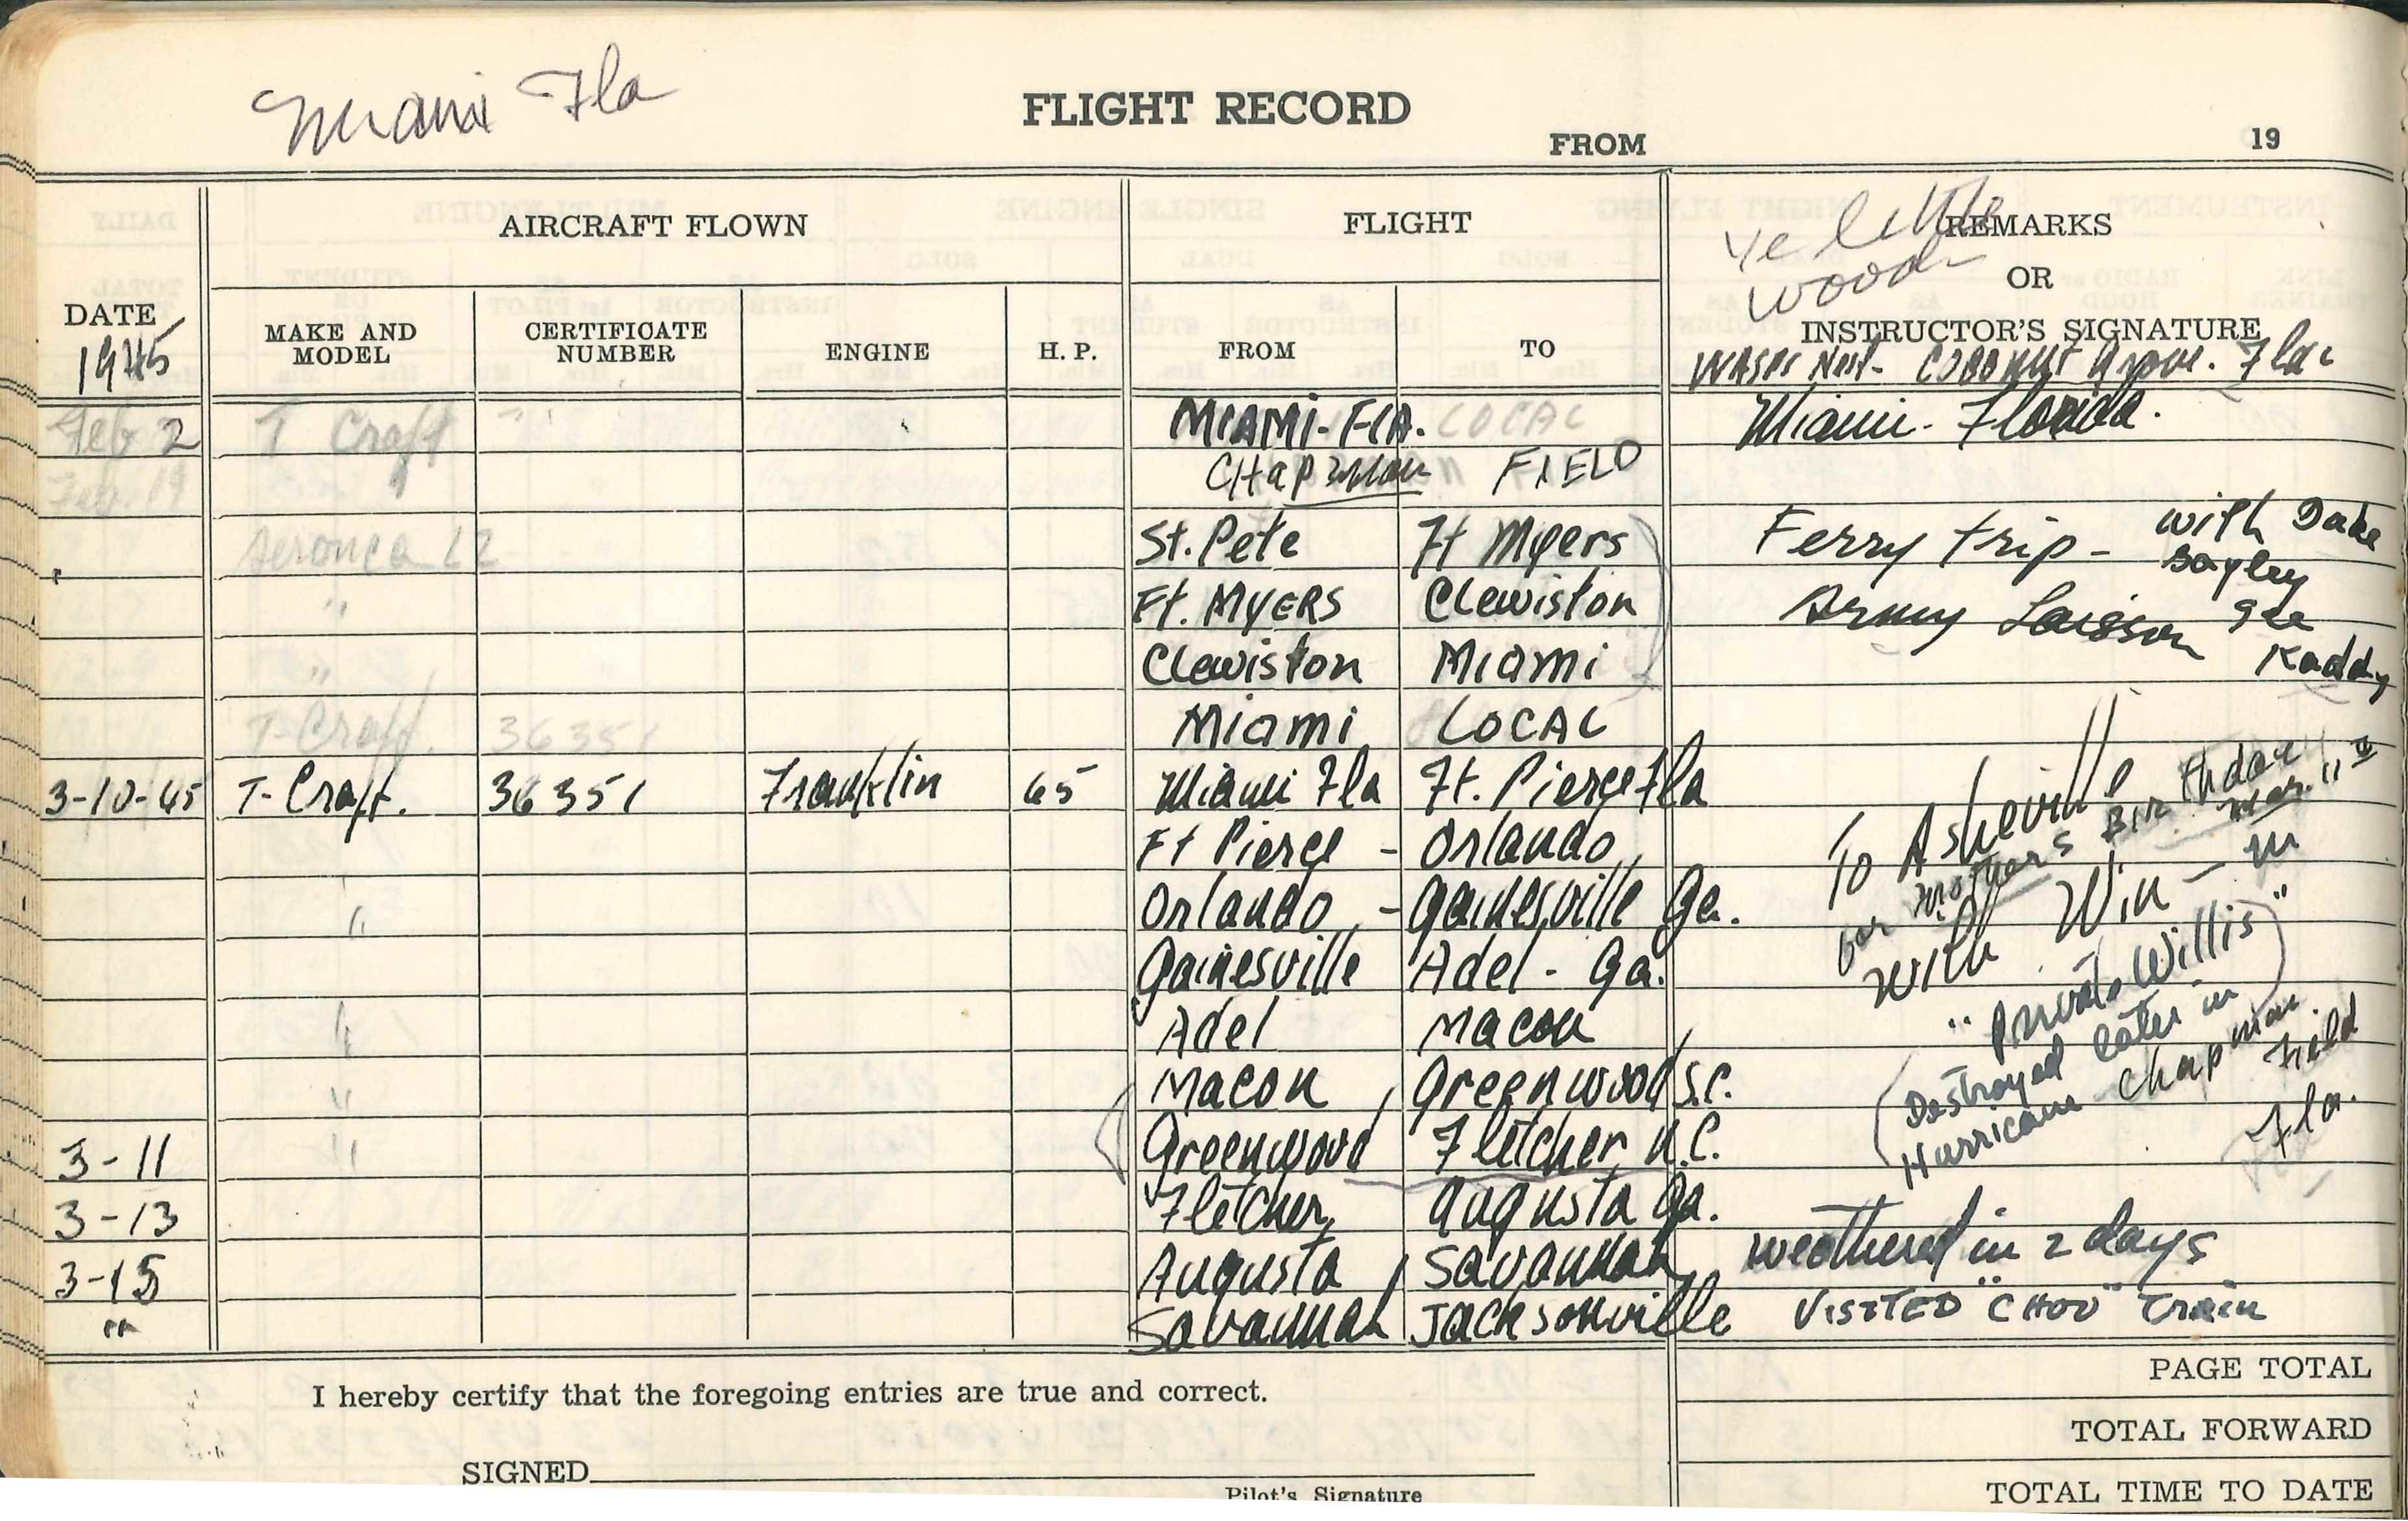 Miami Fla
FLIGHT RECORD
FROM
19
AIRCRAFT FLOWN
FLIGHT
Ye little
wood
REMARKS
OR
INSTRUCTOR'S SIGNATURE
DATE
1945
MAKE AND MODEL
CERTIFICATE NUMBER
ENGINE
H. P.
FROM
TO
WASPS Nest- Coconut Grove. Fla.
Feb 2 T Craft MIAMI-FLA. LOCAL Miami- Florida.
Feb. 19 " Chapman FIELD
Aeronca L2 St. Pete Ft Myers Ferry trip- with
" Ft. MYERS Clewiston Army
" Clewiston Miami
T-Craft. 36351 Miami LOCAL
3-10-45 T-Craft. 36351 Franklin 65 Miami Fla Ft. Pierce Fla
Ft Pierce - Orlando
" Orlando - Gainesville Ga.
Gainesville Adel - Ga.
" Adel Macon
" Macon Greenwood S.C.
3-11 " Greenwood Fletcher, N.C.
3-13 Fletcher, Augusta Ga.
3-15 Augusta Savannah weathered in 2 days
" Savannah Jacksonville VISITED "CHOO" Train
To Asheville
for Mothers Birthday
Mar. 11
with Win - in
"Private Willis"
(Destroyed later in
Hurricane Chapman
Field
Fla.
PAGE TOTAL
I hereby certify that the foregoing entries are true and correct.
TOTAL FORWARD
SIGNED
Pilot's Signature
TOTAL TIME TO DATE